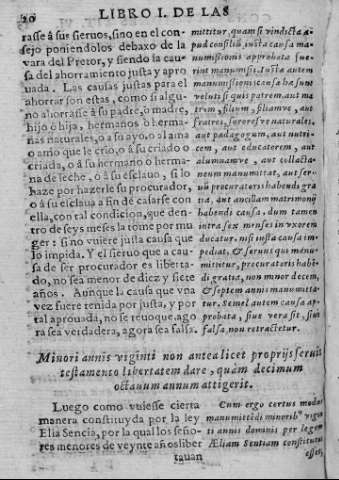 20 LIBRO I. DE LAS
rasse â sus sieruos, sino en el con
sejo poniendolos debaxo de la
vara del Pretor, y siendo la cau-
sa del ahorramiento justa y apro
uada. Las causas justas para el
ahorrar son estas, como si algu-
no ahorrasse â su padre, ô madre,
hijo ô hija, hermanos ô herma-
nas naturales, ô a su ayo, o al ama
o amo que le crio, ô â su criado ô
criada, ô â su hermano o herma-
na de leche, ô â su esclauo, si lo
haze por hazerle su procurador,
o â su esclaua a fin de casarse con
ella, con tal condicion, que den-
tro de seys meses la tome por mu
ger: si no vuiere justa causa que
lo impida. Y el sieruo que a cau-
sa de ser procurador es liberta-
do, no sea menor de diez y siete
años. Aunque la causa que vna
vez fuere tenida por justa, y por
tal aprouada, no se reuoque, ago
ra sea verdadera, agora sea falsa.
mittitur, quam si vindicta a-
pud consiliũ, iusta causa ma-
numissionis approbata fue-
rit manumissi. Iustæ autem
manumissionis causæ hæ sunt
veluti si quis patrem aut ma
trem, filium, filiamve, aut
fratres, sororesve naturales,
aut pædagogum, aut nutri-
cem, aut educatorem, aut
alumnumve, aut collacta-
neum manumittat, aut ser-
uũ procuratoris habendi gra
tia, aut ancillam matrimonij
habendi causa, dum tamen
intra sex menses in vxorem
ducatur, nisi iusta causa im-
pediat, & seruus qui manu-
mittetur, procuratoris habẽ
di gratia, non minor decem,
& septem annis manumitta-
tur. Semel autem causa ap-
probata, siue vera sit, siue
falsa, non retractetur.
Minori annis viginti non antea licet proprijs seruis
testamento libertatem dare, quàm decimum
octauum annum attigerit.
Luego como vuiesse cierta
manera constituyda por la ley
Elia Sencia, por la qual los seño-
res menores de veynte años liber
tauan
Cum ergo certus modus
manumittẽdi minorib⁹ vigin
ti annis dominis per legem
Æliam Sentiam constitutus
esset,